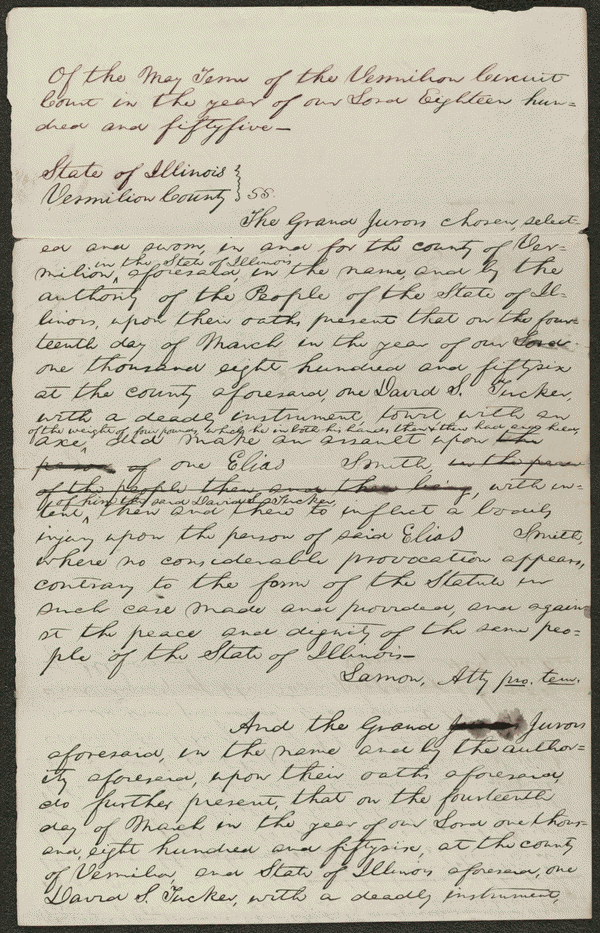 Of the May Term of the Vermilion Circuit
Court in the year of our Lord Eighteen hun=
dred and fiftyfive—
State of Illinois
Vermilion County } ss.
The Grand Jurors chosen, select-
ed and sworn, in and for the county of Ver=
in the State of Illinois
milion, aforesaid, in the name, and by the
authority of the People of the State of Il-
linois, upon their oaths present that on the four-
teenth day of March in the year of our Lord
one thousand eight hundred and fiftysix
at the county aforesaid, one David S. Tucker,
with a deadly instrument, towit, with an
of the weight of four pounds, which he in both his hands then & there had and held,
axe, did make an assault upon the
person of one Elias Smith, in the peace
of the people then and there being, with in-
of him the said David S. Tucker,
tent, then and there to inflict a bodily
injury upon the person of said Elias Smith,
where no considerable provocation appears,
contrary to the form of the Statute in
such case made and provided, and again
st the peace and dignity of the same peo-
ple of the State of Illinois—
Lamon, Atty pro. tem.
And the Grand Jurors
aforesaid, in the name and by the author=
ity aforesaid, upon their oaths aforesaid,
do further present, that on the fourteenth
day of March in the year of our Lord one thous-
and, eight hundred and fiftysix, at the county
of Vermilion, and State of Illinois aforesaid, one
David S. Tucker, with a deadly instrument,